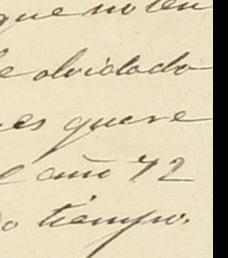 que no ten
e olvidado
es que se
el año 72
do tiempo.